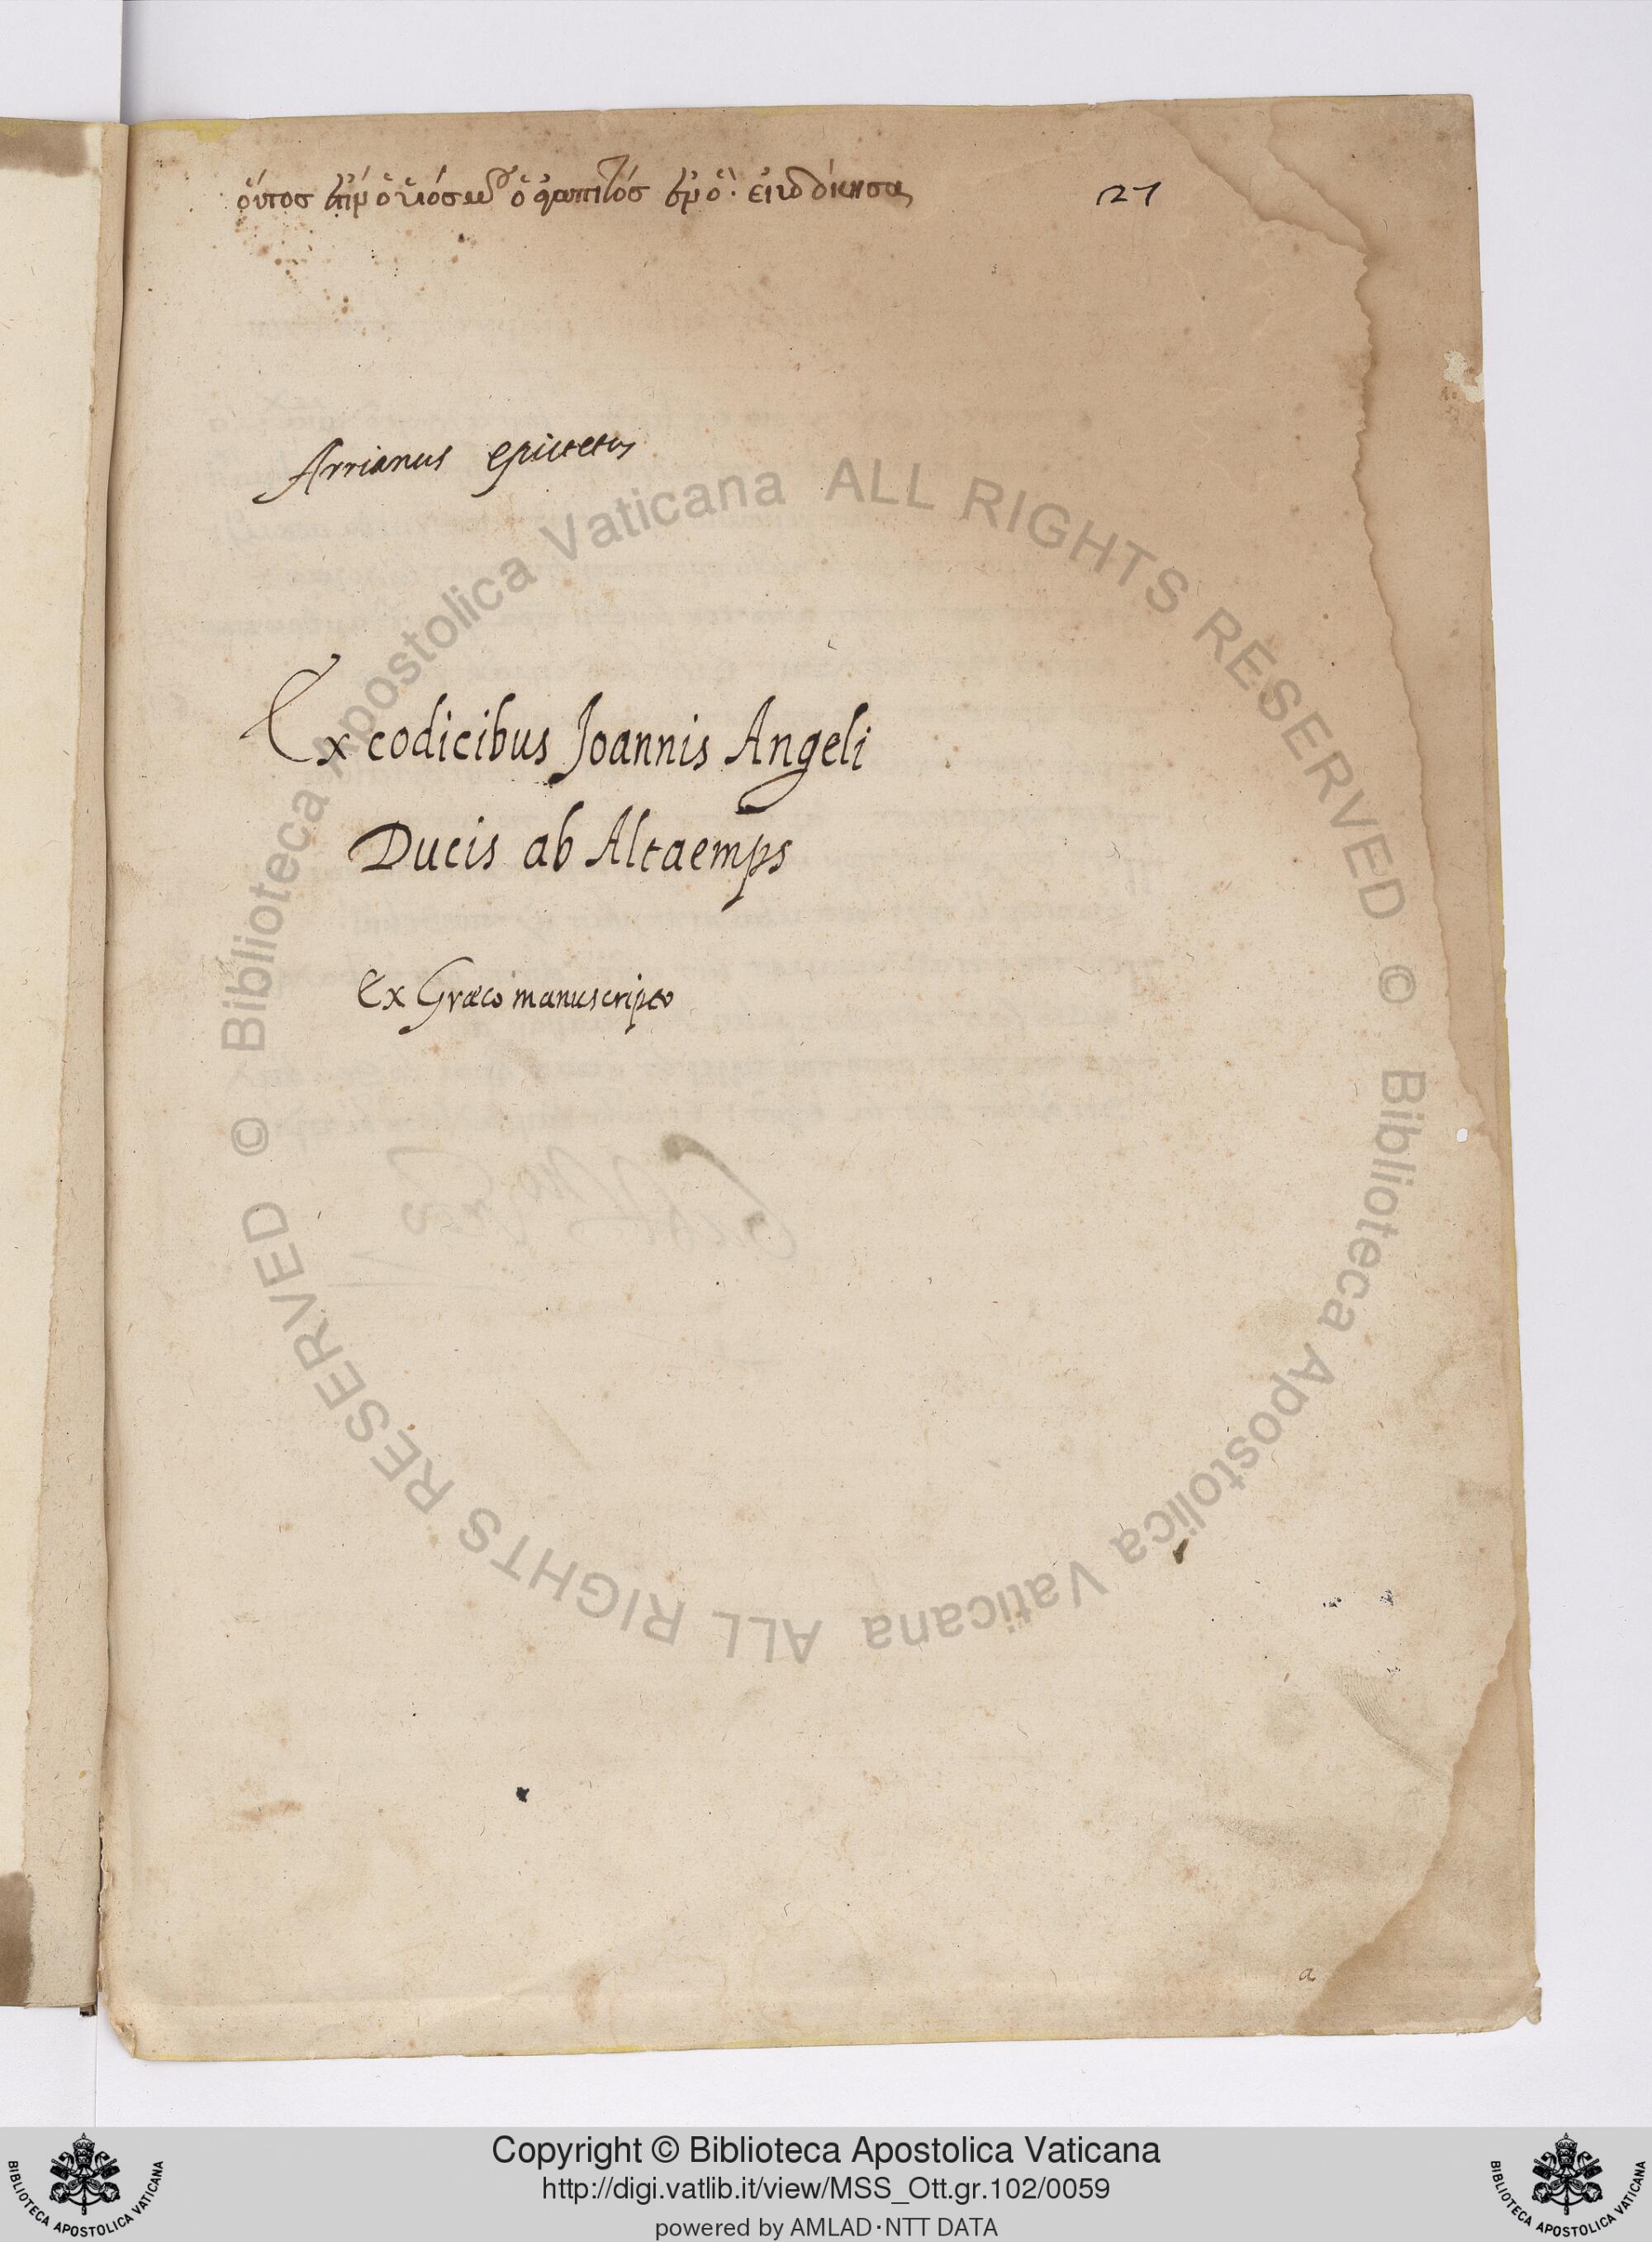 οὗτος ἐστιν ὁ ὑιός μου ὁ ἀγαπιτός ἐν ὁ· εὐδόκησα
27
Arrianus epictetus
Ex codicibus Joannis Angeli
Ducis ab Altaemps
Ex Græco manuscripto
a
© Biblioteca Apostolica Vaticana ALL RIGHTS RESERVED
© Biblioteca Apostolica Vaticana ALL RIGHTS RESERVED
Copyright © Biblioteca Apostolica Vaticana
http://digi.vatlib.it/view/MSS_Ott.gr.102/0059
powered by AMLAD·NTT DATA
BIBLIOTECA APOSTOLICA VATICANA
BIBLIOTECA APOSTOLICA VATICANA